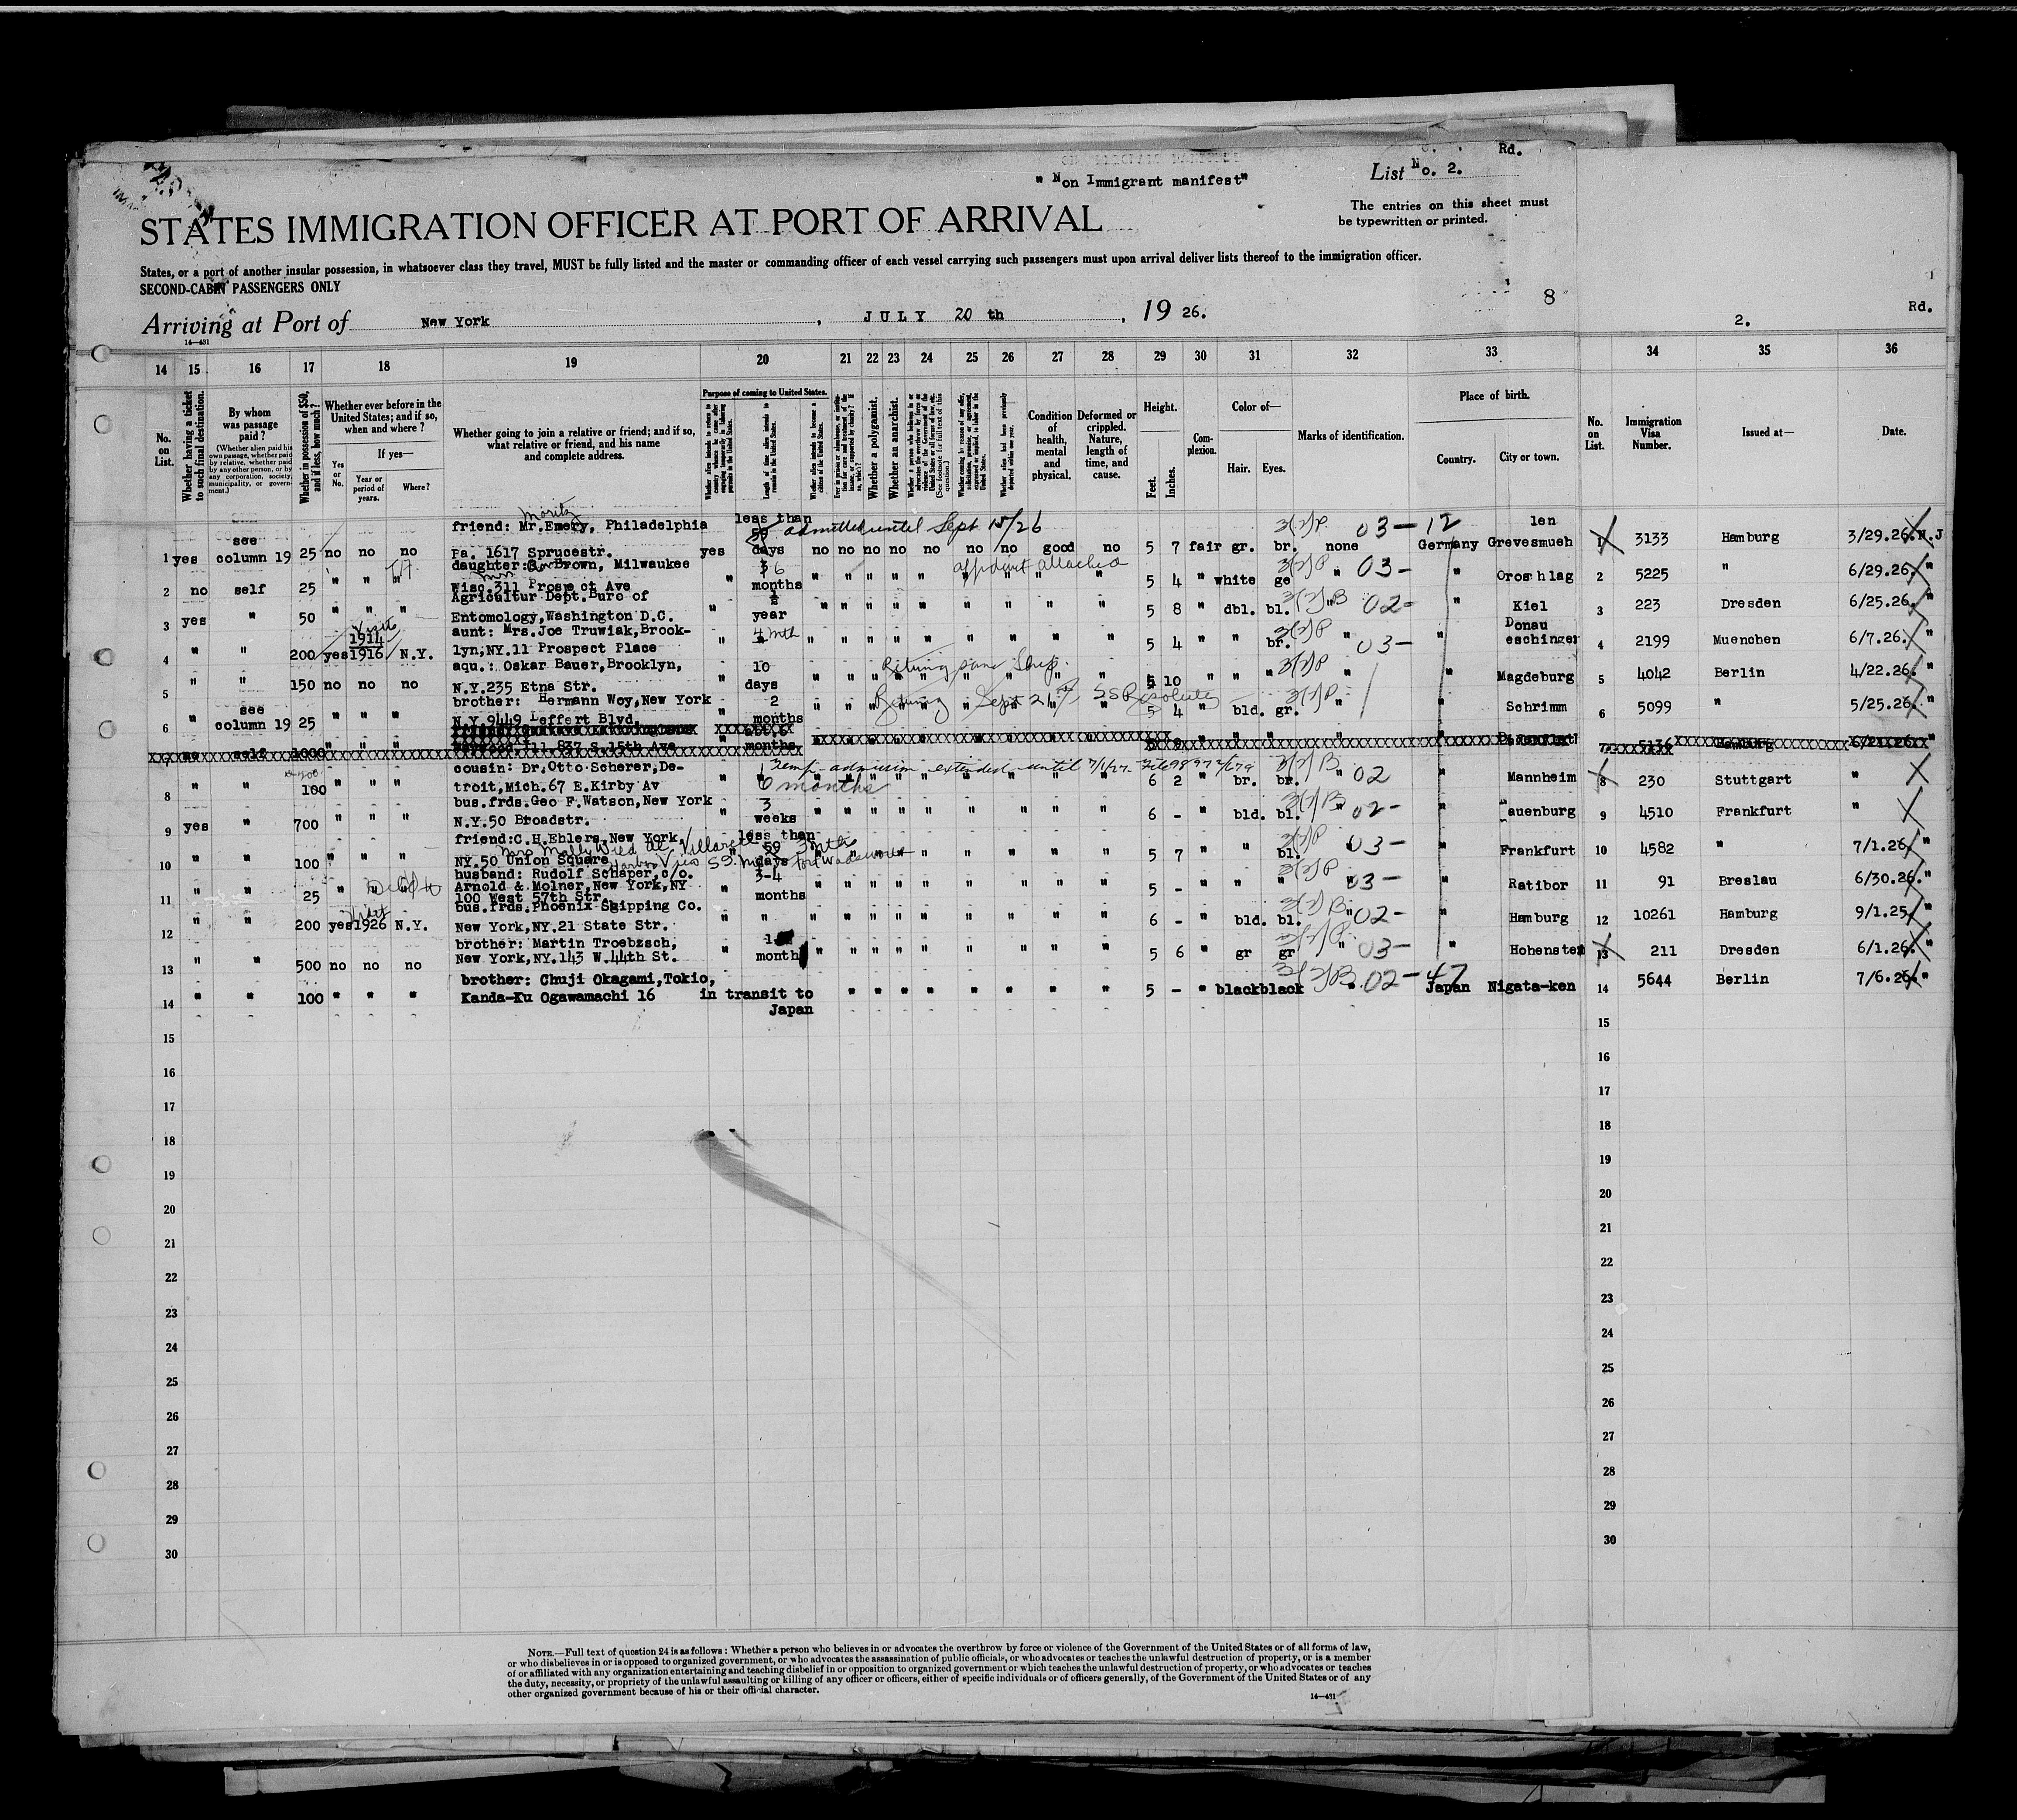 Rd.
" Non Immigrant manifest"
List No. 2.
STATES IMMIGRATION OFFICER AT PORT OF ARRIVAL
The entries on this sheet must
be typewritten or printed.
States, or a port of another insular possession, in whatsoever class they travel, MUST be fully listed and the master or commanding officer of each vessel carrying such passengers must upon arrival deliver lists thereof to the immigration officer.
SECOND-CABIN PASSENGERS ONLY
8
Arriving at Port of New York, JULY 20 th, 19 26.
2. Rd.
14—431
14 15 16 17 18 19 20 21 22 23 24 25 26 27 28 29 30 31 32 33 34 35 36
No. on List.
Whether having a ticket to such final destination.
By whom was passage paid?
(Whether alien paid his own passage, whether paid by relative, whether paid by any other person, or by any corporation, society, municipality, or government.)
Whether in possession of $50, and if less, how much?
Whether ever before in the United States; and if so, when and where?
Yes or No.
If yes—
Year or period of years.
Where?
Whether going to join a relative or friend; and if so, what relative or friend, and his name and complete address.
Purpose of coming to United States.
Length of time alien intends to remain in the United States.
Whether alien intends to become a citizen of the United States.
Whether a polygamist.
Whether an anarchist.
Condition of health, mental and physical.
Deformed or crippled. Nature, length of time, and cause.
Height.
Feet. Inches.
Complexion.
Color of—
Hair. Eyes.
Marks of identification.
Place of birth.
Country. City or town.
No. on List.
Immigration Visa Number.
Issued at—
Date.
Moritz
friend: Mr.Emery, Philadelphia less than admitted until Sept 15/26 03-12 len
1 yes see column 19 25 no no no Pa. 1617 Sprucestr. yes 59 days no no no no no no good no 5 7 fair gr. br. none Germany Grevesmueh 1 3133 Hamburg 3/29.26. N.J
daughter: Brown, Milwaukee 6 affidavit attached 03-
2 no self 25 " " " Wisc.311 Prospect Ave " months " " " " " " " " 5 4 " white ge " " Oroshlag 2 5225 " 6/29.26. "
Agricultur Dept.Buro of ½ 02-
3 yes " 50 " " " Entomology,Washington D.C. " year " " " " " " " " 5 8 " dbl. bl. " " Kiel 3 223 Dresden 6/25.26. "
Visit 1914 aunt: Mrs.Joe Truwiak,Brook- 4 mth 03- Donau
4 " " 200 yes 1916 N.Y. lyn,NY.11 Prospect Place " " " " " " " " " 5 4 " " br. " " eschingen 4 2199 Muenchen 6/7.26. "
aqu.: Oskar Bauer,Brooklyn, 10 Retuning same Ship.
5 " " 150 no no no N.Y.235 Etna Str. " days " " " " " " " " 5 10 " " " " " Magdeburg 5 4042 Berlin 4/22.26. "
brother: Hermann Woy,New York 2 Retuning Sept 21 SS Resolute
6 " see column 19 25 " " " N.Y.9449 Leffert Blvd. " months " " " " " " " " 5 4 " bld. gr. " " Schrimm 6 5099 " 5/25.26. "
7 no self 1000 " " " Maywood Ill 837 S.15th Ave months 7 5136 Hamburg
cousin: Dr.Otto Scherer,De- Temp admission extended until 7/1/27 File 98977/679 02
8 " " 100 " " " troit,Mich.67 E.Kirby Av " 6 months " " " " 6 2 " br. br. " " Mannheim 8 230 Stuttgart "
bus.frds.Geo F.Watson,New York 3 02-
9 yes " 700 " " " N.Y.50 Broadstr. " weeks " " " " " " " " 6 - " bld. bl. " " auenburg 9 4510 Frankfurt "
friend:C.H.Ehlers,New York less than 3 mths 03-
10 " " 100 " " " NY.50 Union Square " 59 days " " " " " " " " 5 7 " " bl. " " Frankfurt 10 4582 " 7/1.26. "
husband: Rudolf Schaper,c/o. 3-4 03-
11 " " 25 " " " Arnold & Molner,New York,NY " months " " " " " " " " 5 - " " " " " Ratibor 11 91 Breslau 6/30.26. "
100 West 57th Str.
Visit bus.frds.Phoenix Sgipping Co. 02-
12 " " 200 yes 1926 N.Y. New York,NY.21 State Str. " " " " " " " " " " 6 - " bld. bl. " " Hamburg 12 10261 Hamburg 9/1.25. "
brother: Martin Troebzsch, 03-
13 " " 500 no no no New York,NY.143 W.44th St. " month " " " " " " " " 5 6 " gr gr " " Hohenstein 13 211 Dresden 6/1.26. "
brother: Chuji Okagami,Tokio, 02-47
14 " " 100 " " " Kanda-Ku Ogawamachi 16 in transit to " " " " " " " " 5 - " black black " Japan Nigata-ken 14 5644 Berlin 7/6.26. "
Japan
15 15
16 16
17 17
18 18
19 19
20 20
21 21
22 22
23 23
24 24
25 25
26 26
27 27
28 28
29 29
30 30
NOTE.—Full text of question 24 is as follows: Whether a person who believes in or advocates the overthrow by force or violence of the Government of the United States or of all forms of law,
or who disbelieves in or is opposed to organized government, or who advocates the assassination of public officials, or who advocates or teaches the unlawful destruction of property, or is a member
of or affiliated with any organization entertaining and teaching disbelief in or opposition to organized government or which teaches the unlawful destruction of property, or who advocates or teaches
the duty, necessity, or propriety of the unlawful assaulting or killing of any officer or officers, either of specific individuals or of officers generally, of the Government of the United States or of any
other organized government because of his or their official character.
14—431